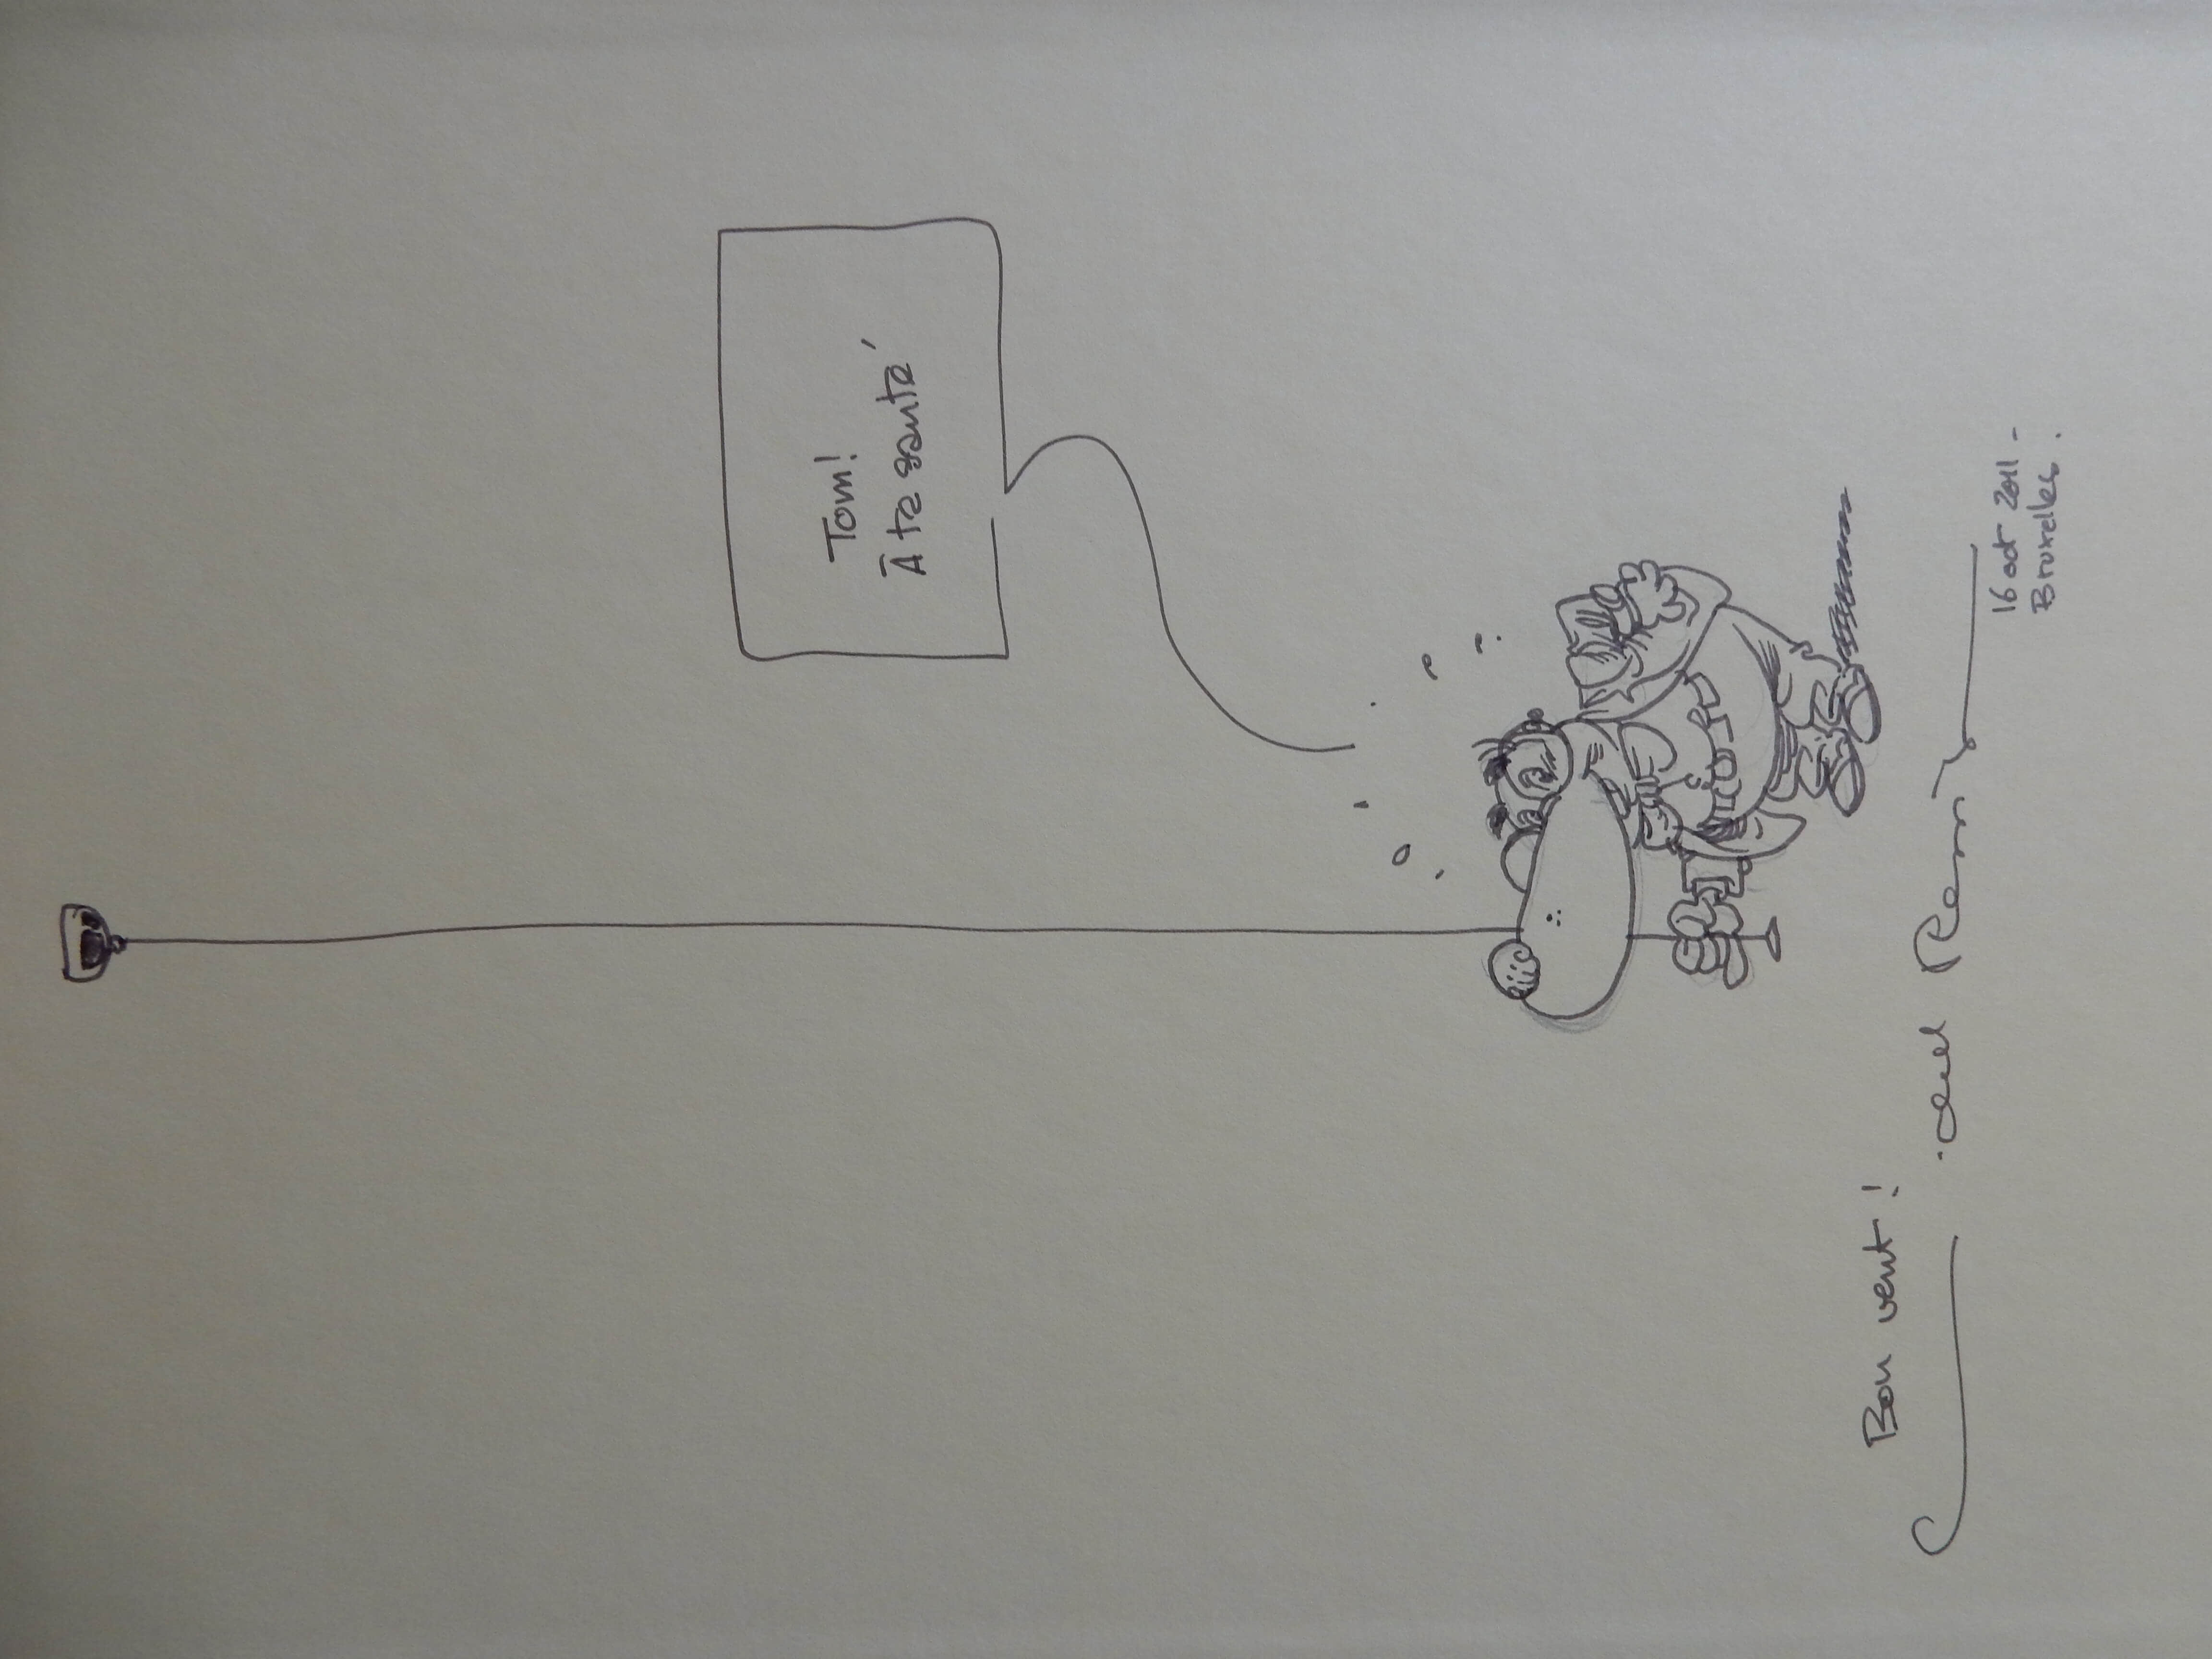 Tom!
À ta santé
Bon vent !
16 oct 2011 -
Bruxelles .